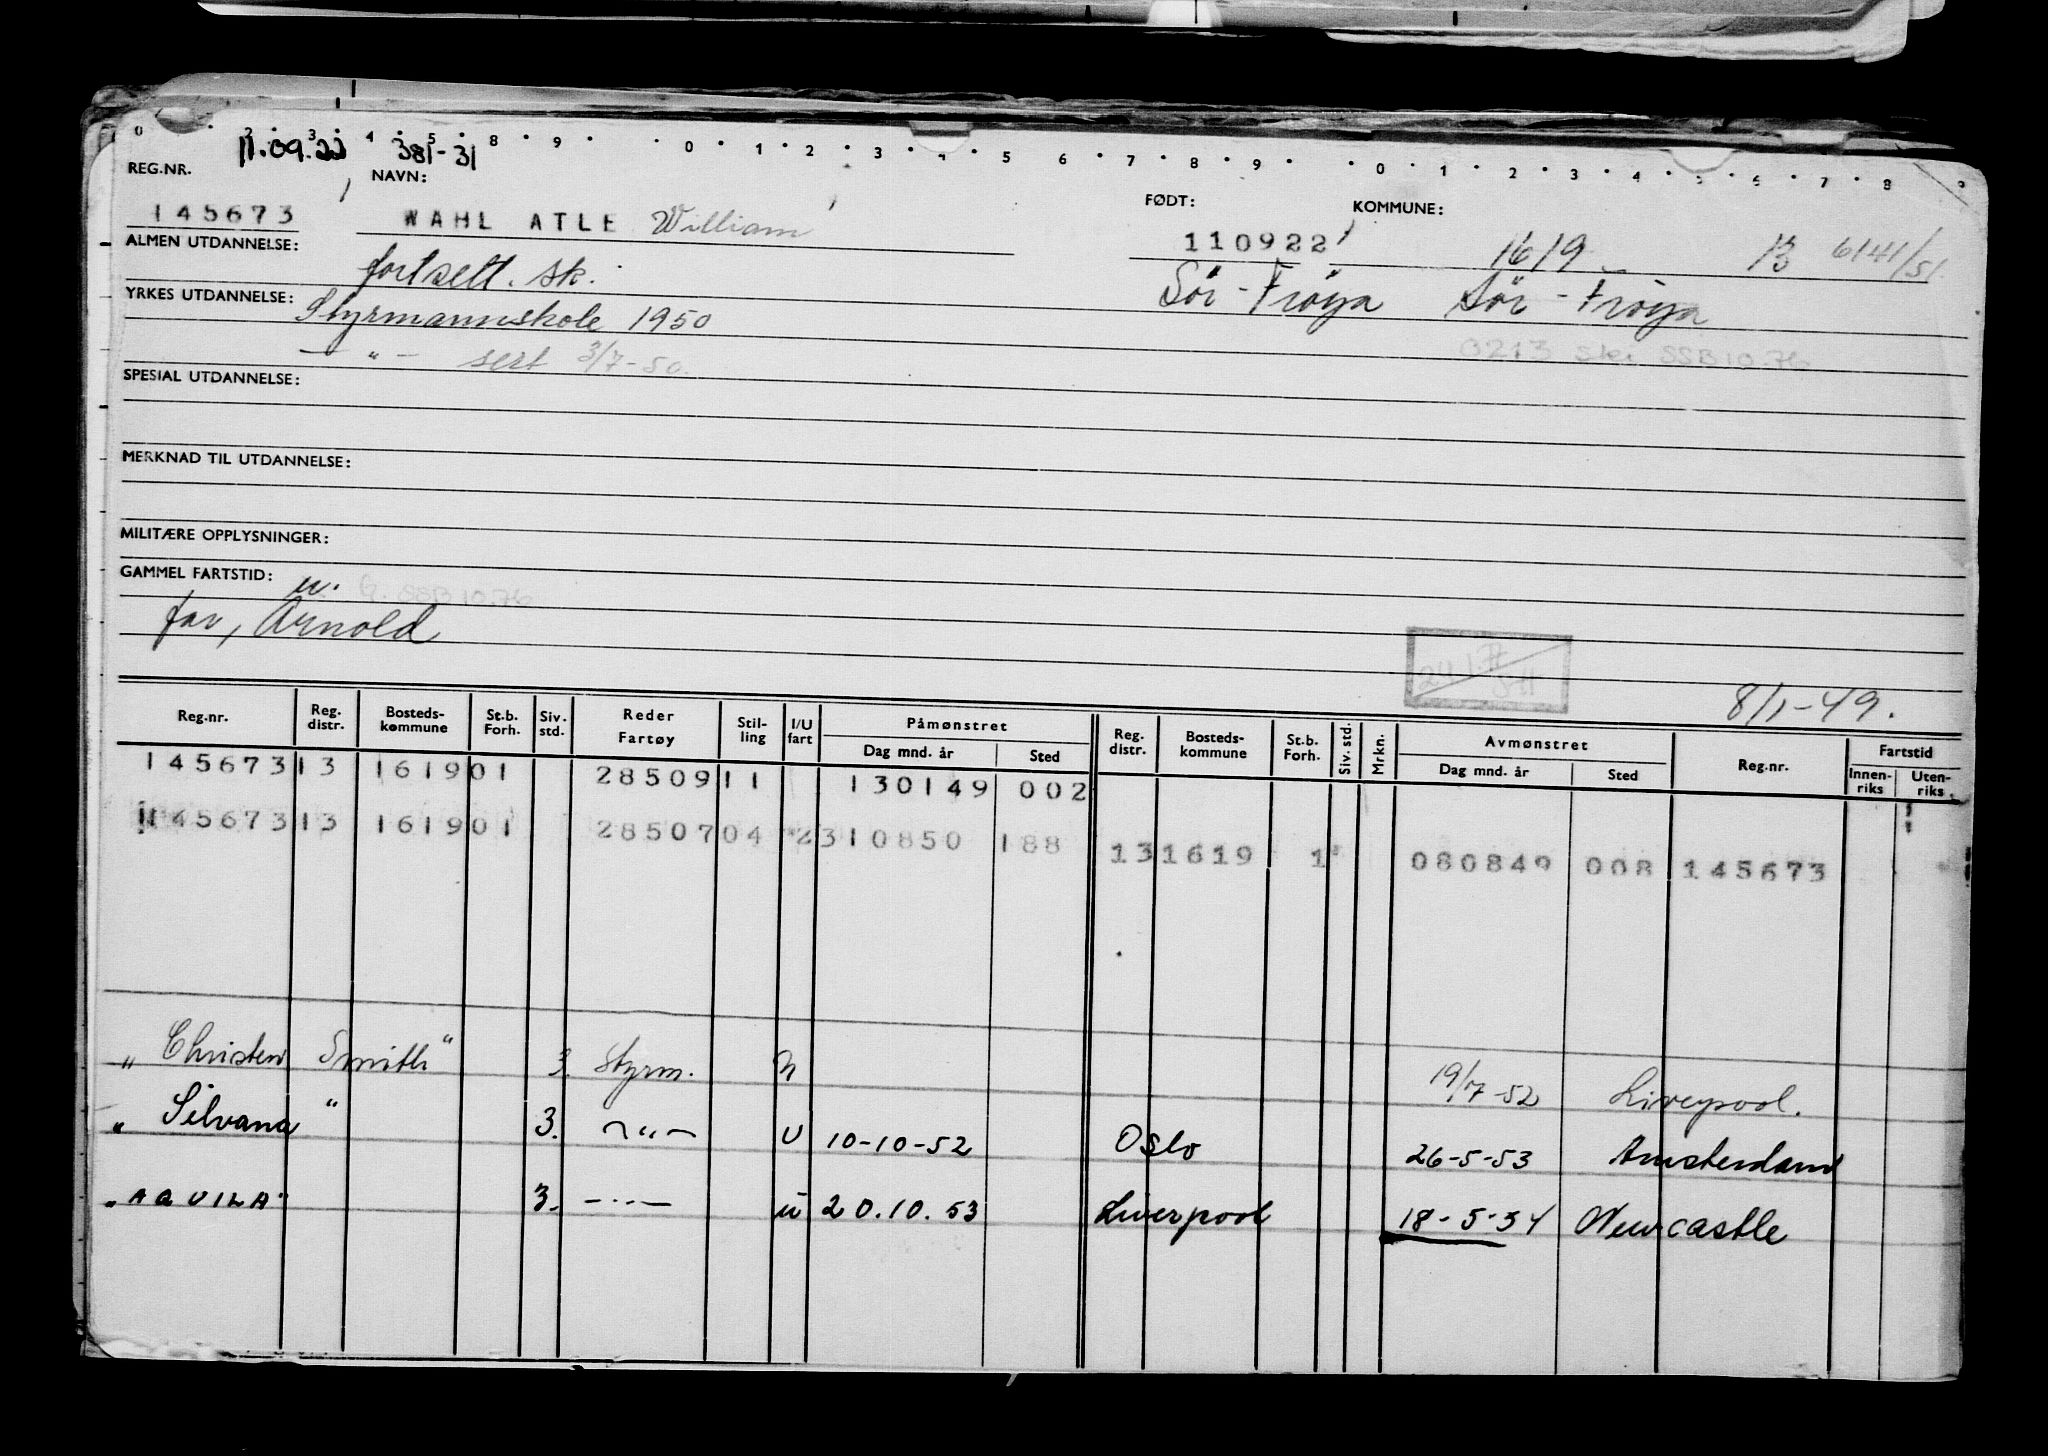 0 . 2 . 3 . 4 . 5 . 8 9 . . 0 . 1 . 2 . 3 . 4 . 5 6 . 7 . 8 . 9 . . 0 . 1 . 2 . 3 . 4 . 5 . 6 . 7 . 8 . 9
11.09.22 381-31
REG.NR. NAVN: FØDT: KOMMUNE:
145673 WAHL ATLE William 110922 1619 13 6141/51
ALMEN UTDANNELSE: fortsett. sk. Sör-Fröya Sör-Fröya
YRKES UTDANNELSE: Styrmannskole 1950
— " — sert 3/7-50. 0213 Ski SSB10.76
SPESIAL UTDANNELSE:
MERKNAD TIL UTDANNELSE:
MILITÆRE OPPLYSNINGER:
GAMMEL FARTSTID: u. G. SSB10.76
far, Arnold
8/1-49.
Reg.nr. Reg. distr. Bosteds-kommune St.b. Forh. Siv. std. Reder Fartøy Stil-ling I/U fart Påmønstret Dag mnd. år Sted Reg. distr. Bosteds-kommune St.b. Forh. Siv. std. Mrkn. Avmønstret Dag mnd. år Sted Reg.nr. Fartstid Innen-riks Uten-riks
145673 13 1619 01 28509 11 130149 002
145673 13 1619 01 28507 04 2 310850 188 13 1619 1 080849 008 145673
" Christen Smith" 3. styrm. U 19/7-52 Liverpool.
" Silvana " 3. —"— U 10-10-52 Oslo 26-5-53 Amsterdam
"AQUILA" 3. —"— u 20.10.53 Liverpool 18-5-54 Newcastle